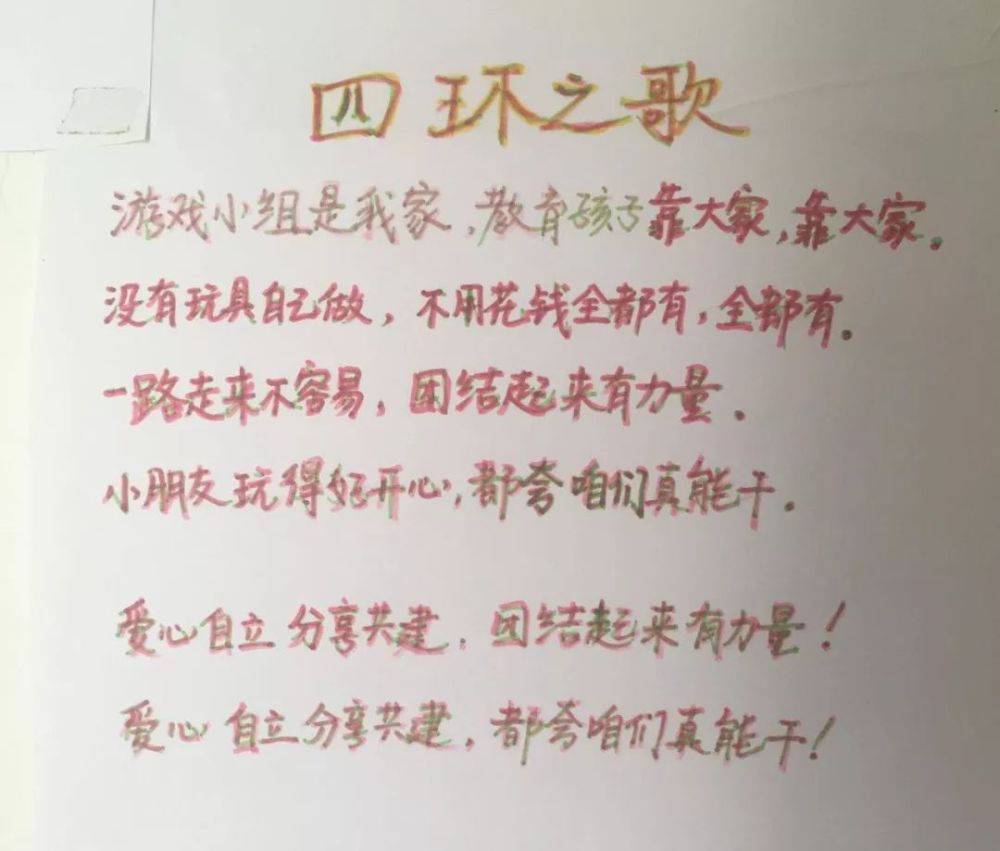 四环之歌
游戏小组是我家,教育孩子靠大家,靠大家。
没有玩具自己做,不用花钱全都有,全都有。
一路走来不容易,团结起来有力量。
小朋友玩得好开心,都夸咱们真能干。
爱心自立分享共建,团结起来有力量!
爱心自立分享共建,都夸咱们真能干!